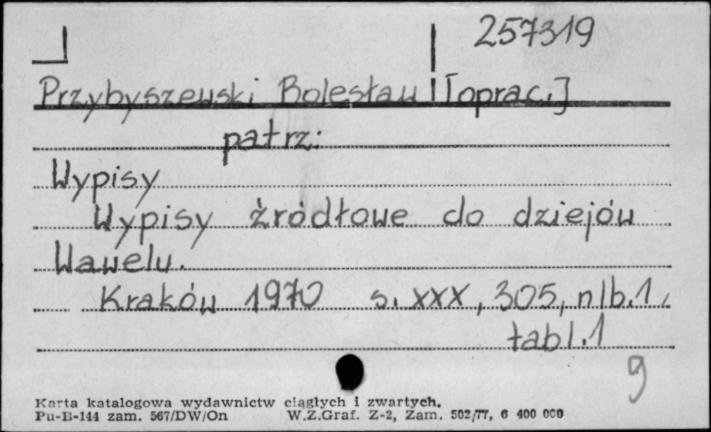 257319
Przybyszewski Bolesław [oprac.]
patrz:
Wypisy
Wypisy źródłowe do dziejów
Wawelu.
Kraków 1970 s. XXX, 305, nlb. 1,
tabl. 1
9
Karta katalogowa wydawnictw ciągłych i zwartych.
Pu-B-144 zam. 567/DW/On W.Z.Graf. Z-2, Zam. 502/77, 6 400 000